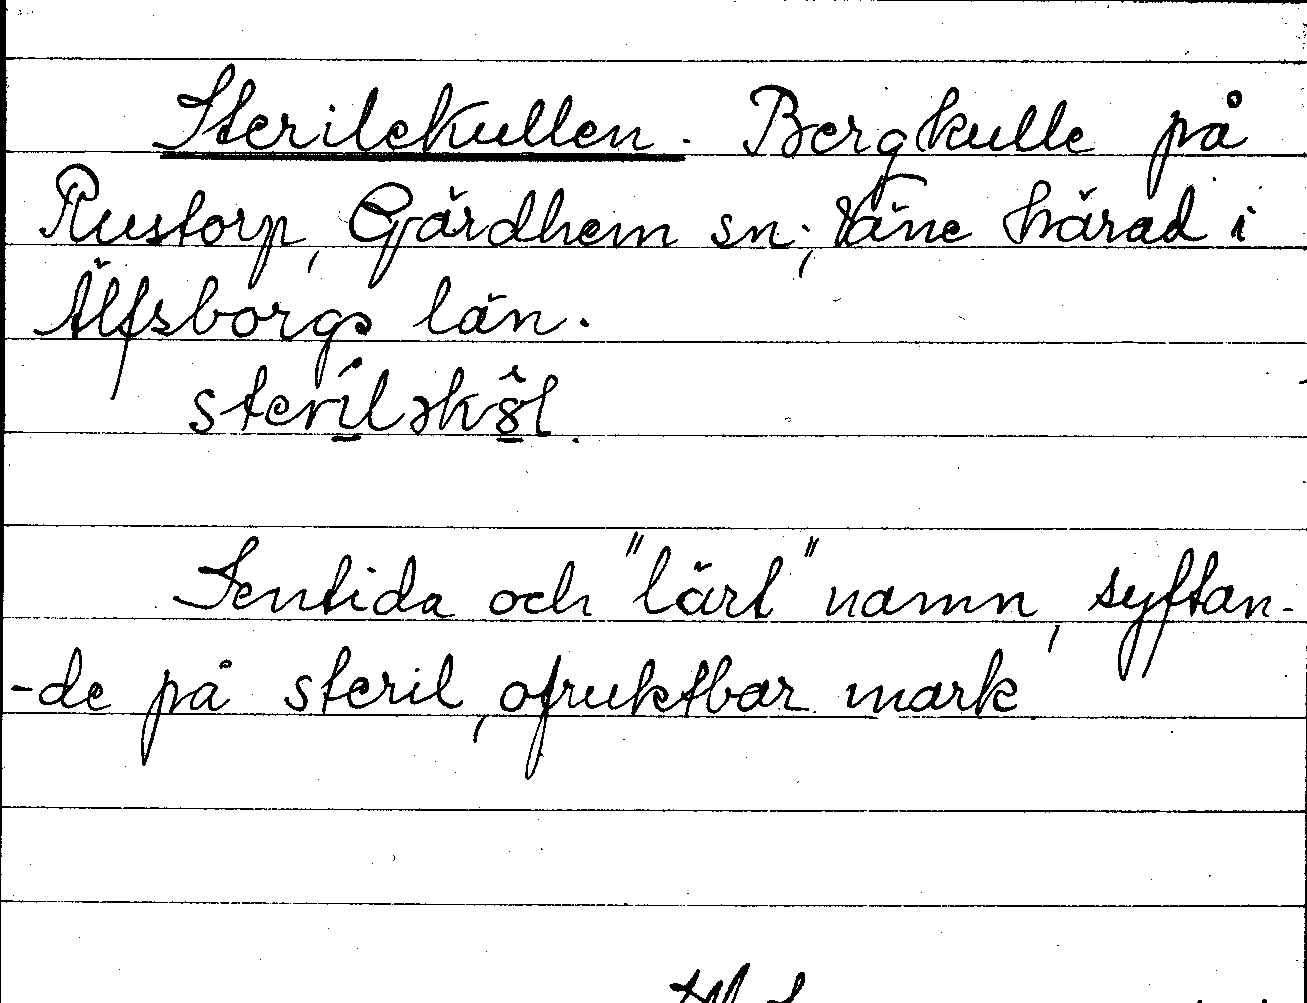 Sterilekullen. Bergkulle på
Rustorp, Gärdhem sn; Väne härad i
Älfsborgs län.
sterilək8̂l.
Sentida och "lärt" namn, syftan-
-de på steril, ofruktbar mark